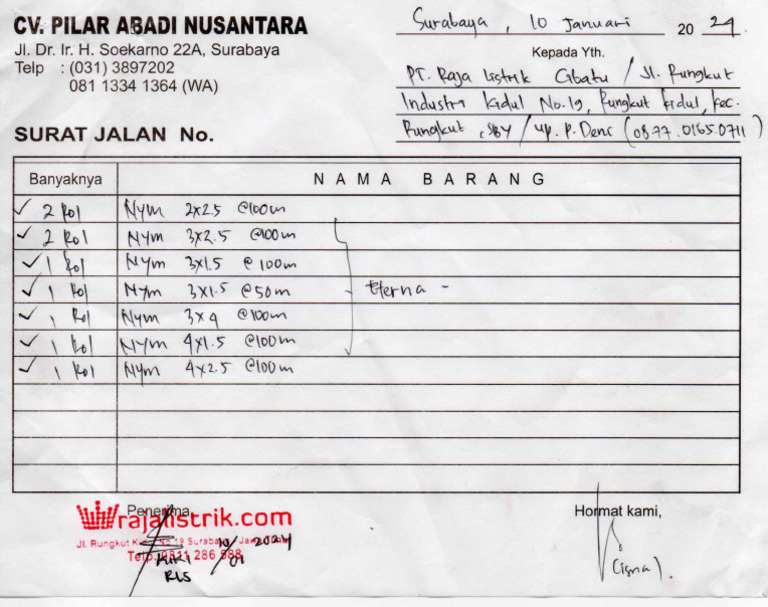 CV. PILAR ABADI NUSANTARA
Jl. Dr. Ir. H. Soekarno 22A, Surabaya
Telp : (031) 3897202
081 1334 1364 (WA)
Surabaya, 10 Januari 2024.
Kepada Yth.
PT. Raja Listrik Cibatu / Jl. Rungkut
Industri Kidul No.19, Rungkut Kidul, Kec.
Rungkut, SBY / Up. P. Deni (0877.0165.0711)
SURAT JALAN No.
Banyaknya NAMA BARANG
✓ 2 Rol Nym 2x2.5 @100m
✓ 2 Rol Nym 3x2.5 @100m
✓ 1 Rol Nym 3x1.5 @100m
✓ 1 Rol Nym 3x1.5 @50m Eterna -
✓ 1 Rol Nym 3x4 @100m
✓ 1 Rol Nym 4x1.5 @100m
✓ 1 Rol Nym 4x2.5 @100m
Penerima, Hormat kami,
rajalistrik.com
Jl. Rungkut No.19 Surabaya
10/01 2024
Telp. 0811 286 988
KIKI
RLS
(isma).